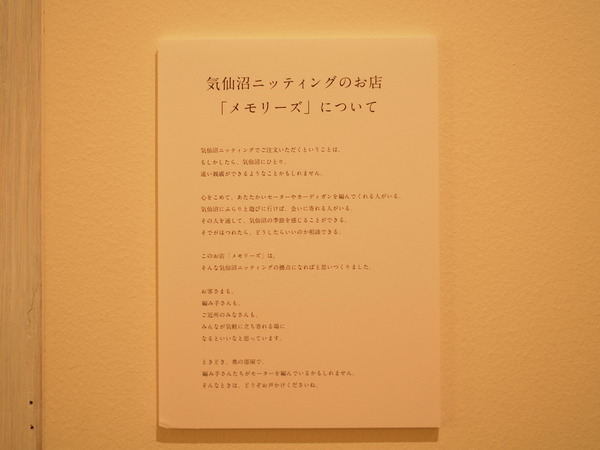 気仙沼ニッティングのお店
「メモリーズ」について
気仙沼ニッティングでご注文いただくということは、
もしかしたら、気仙沼にひとり、
遠い親戚ができるようなことかもしれません。
心をこめて、あたたかいセーターやカーディガンを編んでくれる人がいる。
気仙沼にふらりと遊びに行けば、会いに寄れる人がいる。
その人を通して、気仙沼の季節を感じることができる。
そでがほつれたら、どうしたらいいのか相談できる。
このお店「メモリーズ」は、
そんな気仙沼ニッティングの拠点になればと思いつくりました。
お客さまも、
編み手さんも、
ご近所のみなさんも、
みんなが気軽に立ち寄れる場に
なるといいなと思っています。
ときどき、奥の部屋で、
編み手さんたちがセーターを編んでいるかもしれません。
そんなときは、どうぞお声かけくださいね。